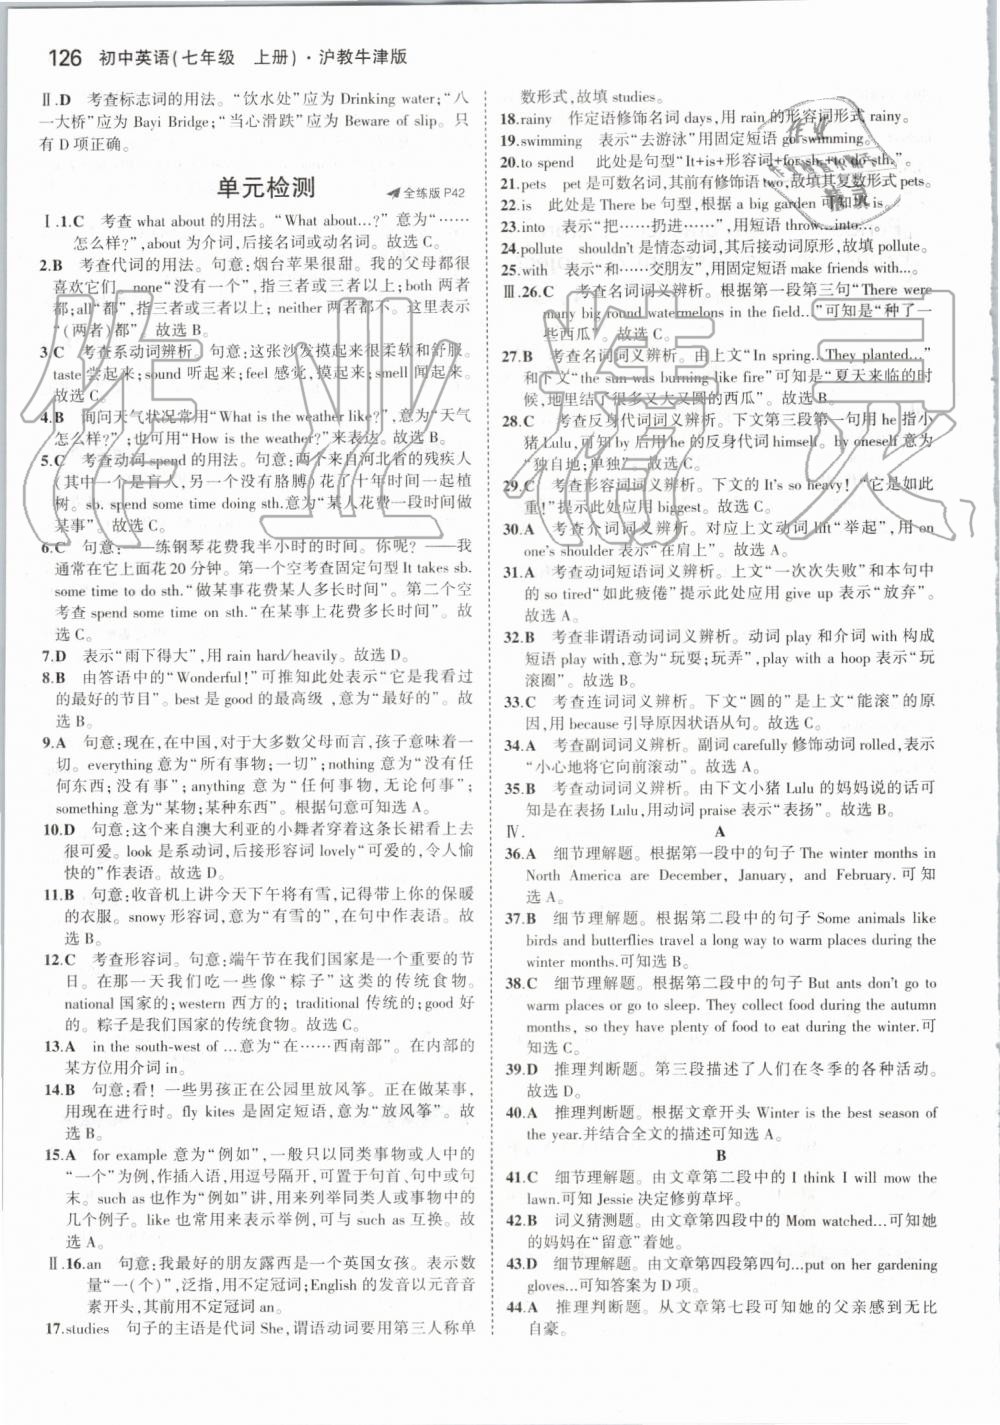 126 初中英语(七年级 上册)·沪教牛津版
Ⅱ.D 考查标志词的用法。“饮水处”应为Drinking water;“八
一大桥”应为Bayi Bridge;“当心滑跌”应为Beware of slip。只
有D项正确。
单元检测 全练版P42
Ⅰ.1.C 考查what about的用法。“What about...?”意为“……
怎么样?”,about为介词,后接名词或动名词。故选C。
2.B 考查代词的用法。句意:烟台苹果很甜。我的父母都很
喜欢它们。none“没有一个”,指三者或三者以上;both两者
都;all“都”,指三者或三者以上;neither两者都不。这里表示
“(两者)都”,故选B。
3.C 考查系动词辨析。句意:这张沙发摸起来很柔软和舒服。
taste尝起来;sound听起来;feel感觉,摸起来;smell闻起来。
故选C。
4.B 询问天气状况常用“What is the weather like?”,意为“天气
怎么样?”;也可用“How is the weather?”来表达。故选B。
5.C 考查动词spend的用法。句意:两个来自河北省的残疾人
(其中一个是盲人,另一个没有胳膊)花了十年时间一起植
树。sb. spend some time doing sth.意为“某人花费一段时间做
某事”。故选C。
6.C 句意:——练钢琴花费我半小时的时间。你呢? ——我
通常在它上面花20分钟。第一个空考查固定句型It takes sb.
some time to do sth.“做某事花费某人多长时间”。第二个空
考查spend some time on sth.“在某事上花费多长时间”。故
选C。
7.D 表示“雨下得大”,用rain hard/heavily。故选D。
8.B 由答语中的“Wonderful!”可推知此处表示“它是我看过
的最好的节目”。best是good的最高级,意为“最好的”。故
选B。
9.A 句意:现在,在中国,对于大多数父母而言,孩子意味着一
切。everything意为“所有事物;一切”;nothing意为“没有任
何东西;没有事”;anything意为“任何事物,无论何事”;
something意为“某物;某种东西”。根据句意可知选A。
10.D 句意:这个来自澳大利亚的小舞者穿着这条长裙看上去
很可爱。look是系动词,后接形容词lovely“可爱的,令人愉
快的”作表语。故选D。
11.B 句意:收音机上讲今天下午将有雪,记得带上你的保暖
的衣服。snowy形容词,意为“有雪的”,在句中作表语。故
选B。
12.C 考查形容词。句意:端午节在我们国家通常在五月或六
月。在那一天我们吃一些像“粽子”这样的传统食物。
national国家的;western西方的;traditional传统的;good好
的。粽子是我们国家的传统食物。故选C。
13.A in the south-west of...意为“在……西南部”。在内部的
某方位用介词in。
14.B 句意:看!一些男孩正在公园里放风筝。正在做某事,
用现在进行时。fly kites是固定短语,意为“放风筝”。故
选B。
15.A for example意为“例如”,一般只以同类事物或人中的
“一个”为例,作插入语,用逗号隔开,可置于句首、句中或句
末。such as也作为“例如”讲,用来列举同类人或事物中的
几个例子。like也常用来表示举例,可与such as互换。故
选A。
Ⅱ.16.an 句意:我最好的朋友露西是一个英国女孩。表示数
量“一(个)”,泛指,用不定冠词;English的发音以元音音
素开头,其前用不定冠词an。
17.studies 句子的主语是代词She,谓语动词要用第三人称单
数形式,故填studies。
18.rainy 作定语修饰名词days,用rain的形容词形式rainy。
19.swimming 表示“去游泳”用固定短语go swimming。
20.to spend 此处是句型“It+is+形容词+for sb.+to do sth.”。
21.pets pet是可数名词,其前有修饰语two,故填其复数形式pets。
22.is 此处是There be句型,根据a big garden可知填is。
23.into 表示“把……扔进……”,用固定短语throw...into...。
24.pollute shouldn't是情态动词,其后接动词原形,故填pollute。
25.with 表示“和……交朋友”,用固定短语make friends with...。
Ⅲ.26.C 考查名词词义辨析。根据第一段第三句“There were
many big round watermelons in the field...”可知是“种了一
些西瓜”。故选C。
27.B 考查名词词义辨析。由上文“In spring...They planted...”
和下文“the sun was burning like fire”可知是“夏天来临的时
候,地里结了很多又大又圆的西瓜”。故选B。
28.C 考查反身代词词义辨析。下文第三段第一句用he指小
猪Lulu,可知by后用he的反身代词himself。by oneself意为
“独自地;单独”。故选C。
29.C 考查形容词词义辨析。下文的It's so heavy!“它是如此
重!”提示此处应用biggest。故选C。
30.A 考查介词词义辨析。对应上文动词lift“举起”,用on
one's shoulder表示“在肩上”。故选A。
31.A 考查动词短语词义辨析。上文“一次次失败”和本句中
的so tired“如此疲倦”提示此处应用give up表示“放弃”。
故选A。
32.B 考查非谓语动词词义辨析。动词play和介词with构成
短语play with,意为“玩耍;玩弄”,play with a hoop表示“玩
滚圈”。故选B。
33.C 考查连词词义辨析。下文“圆的”是上文“能滚”的原
因,用because引导原因状语从句。故选C。
34.A 考查副词词义辨析。副词carefully修饰动词rolled,表示
“小心地将它向前滚动”。故选A。
35.B 考查动词词义辨析。由下文小猪Lulu的妈妈说的话可
知是在表扬Lulu,用动词praise表示“表扬”。故选B。
Ⅳ. A
36.A 细节理解题。根据第一段中的句子The winter months in
North America are December, January, and February.可知
选A。
37.B 细节理解题。根据第二段中的句子Some animals like
birds and butterflies travel a long way to warm places during the
winter months.可知选B。
38.C 细节理解题。根据第二段中的句子But ants don't go to
warm places or go to sleep. They collect food during the autumn
months, so they have plenty of food to eat during the winter.可
知选C。
39.D 推理判断题。第三段描述了人们在冬季的各种活动。
故选D。
40.A 推理判断题。根据文章开头Winter is the best season of
the year.并结合全文的描述可知选A。
B
41.C 细节理解题。由文章第二段中的I think I will mow the
lawn.可知Jessie决定修剪草坪。
42.B 词义猜测题。由文章第四段中的Mom watched...可知她
的妈妈在“留意”着她。
43.D 细节理解题。由文章第四段第四句...put on her gardening
gloves...可知答案为D项。
44.A 推理判断题。从文章第七段可知她的父亲感到无比
自豪。